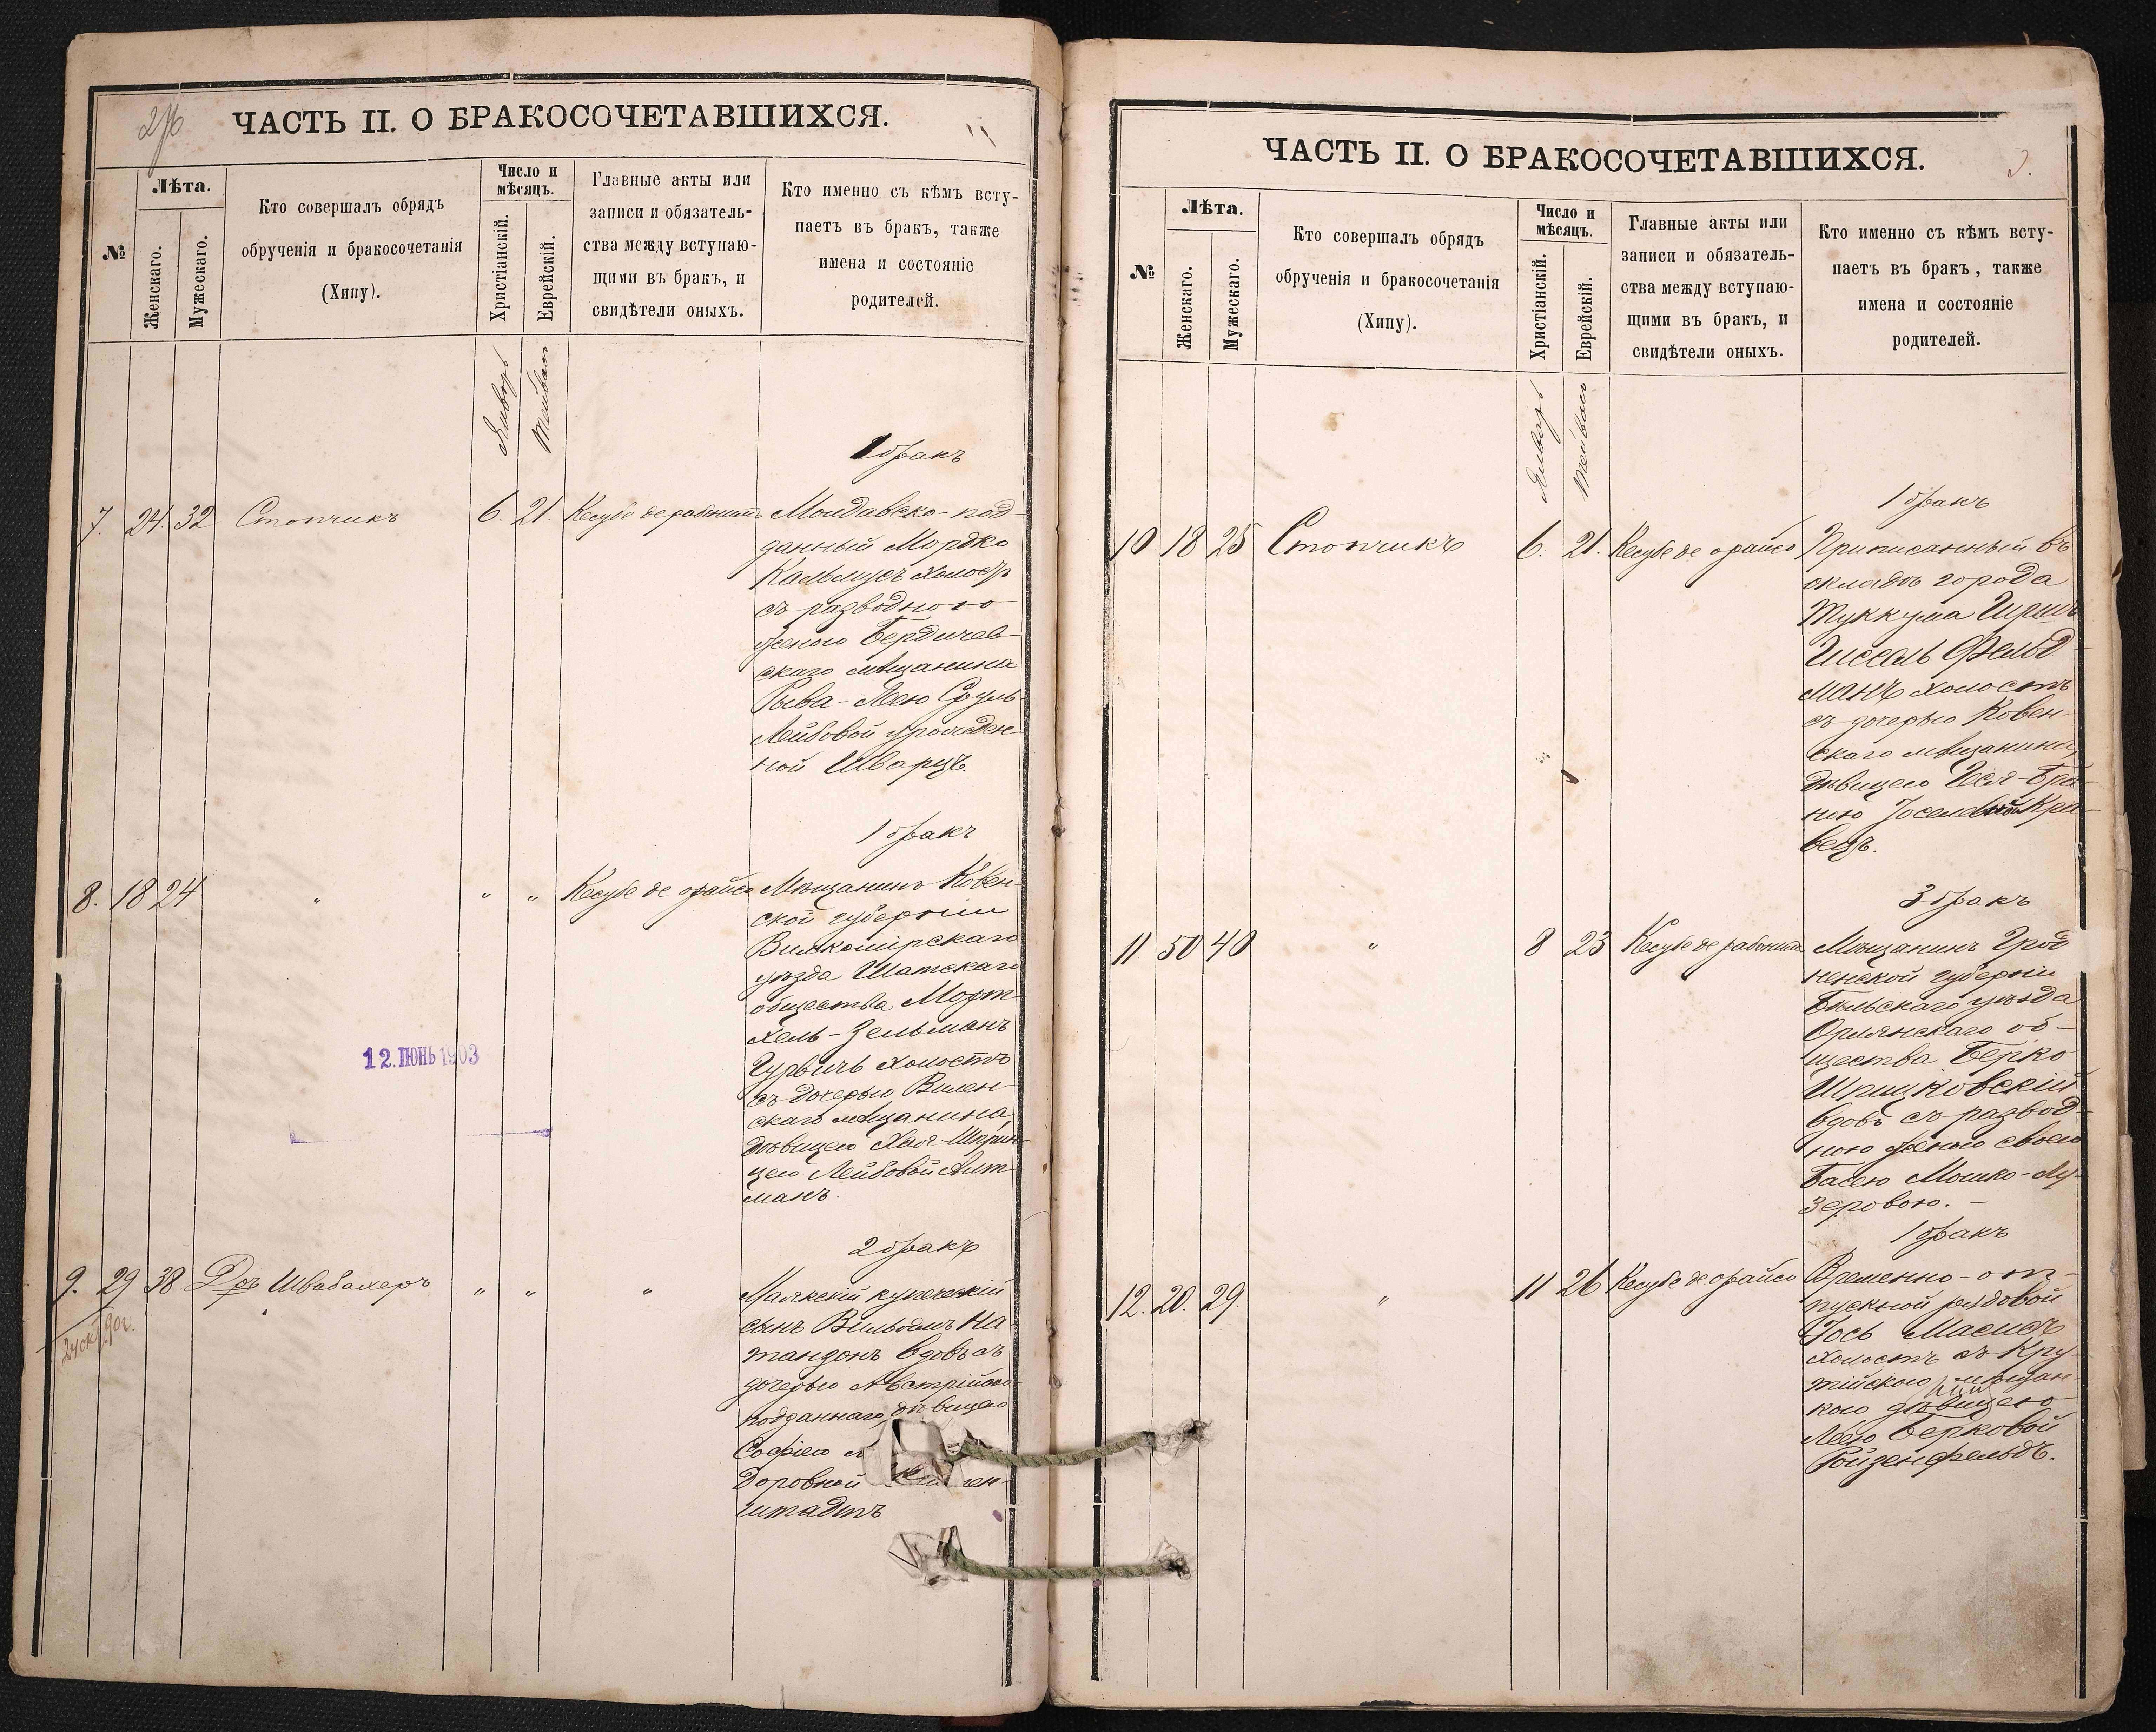 ЧАСТЬ II. О БРАКОСОЧЕТАВШИХСЯ.
№
Лѣта.
Женскаго.
Мужескаго.
Кто совершалъ обрядъ
обрученія и бракосочетанія
(Хипу).
Число и
мѣсяцъ.
Христіанскій.
Еврейскій.
Главные акты или
записи и обязатель-
ства между вступаю-
щими въ бракъ, и
свидѣтели оныхъ.
Кто именно съ кѣмъ всту-
паетъ въ бракъ, также
имена и состояніе
родителей.
Январь
Тейвас
1 бракъ
7. 24. 32 Стопчикъ 6. 21. Кесубе де рабонит Молдавско-под-
данный Мордко
Кальмусъ холостъ
съ разводною
женою Бердичев-
скаго мѣщанина
Рыва-Лею Сруль
Лейбовой урожден-
ной Шварцъ
1 бракъ
8. 18 24 " " " Кесубе де орайсо Мѣщанинъ Ковен-
ской губерніи
Вилкомірскаго
уѣзда Шатскаго
общества Морт-
хель-Зельманъ
Гурвичъ холостъ
съ дочерью Вилен-
скаго мѣщанина,
дѣвицею Хая-Шприн-
цею Лейбовой Алт-
манъ.
12. ІЮНЬ 1903
2 бракъ
9. 29 38 Д-ръ Швабахеръ " " " Маякскій купеческій
сынъ Вильгельмъ На-
тансонъ вдовъ съ
дочерью Австрійско-
подданнаго, дѣвицею
Софіею
доровной
штадтъ
ЧАСТЬ II. О БРАКОСОЧЕТАВШИХСЯ.
№
Лѣта.
Женскаго.
Мужескаго.
Кто совершалъ обрядъ
обрученія и бракосочетанія
(Хипу).
Число и
мѣсяцъ.
Христіанскій.
Еврейскій.
Главные акты или
записи и обязатель-
ства между вступаю-
щими въ бракъ, и
свидѣтели оныхъ.
Кто именно съ кѣмъ всту-
паетъ въ бракъ, также
имена и состояніе
родителей.
Январь
Тейвас
1 бракъ
10. 18 25 Стопчикъ 6. 21. Кесубе де орайсо Приписанный въ
окладъ города
Туккума Ирша
Иссель Фельд
манъ холостъ
съ дочерью Ковен-
скаго мѣщанина,
дѣвицею Геся-Бра-
ною Іоселевной Кра-
вецъ.
3 бракъ
11. 50 40 " 8 23 Кесубе де рабонит Мѣщанинъ Грод
ненской губерніи
Бѣльскаго уѣзда
Орлянскаго об-
щества Берко
Иршковскій
вдовъ съ развод-
ною женою своею
Басею Мошко-Лу-
зеровою. -
1 бракъ
12. 20. 29. " 11 26 Кесубе де орайсо Временно-от-
пускной рядовой
Іось
холостъ съ Кру-
тійскою мѣщан-
кою дѣвицею
Леею Берковой
Ройзенфельдъ.